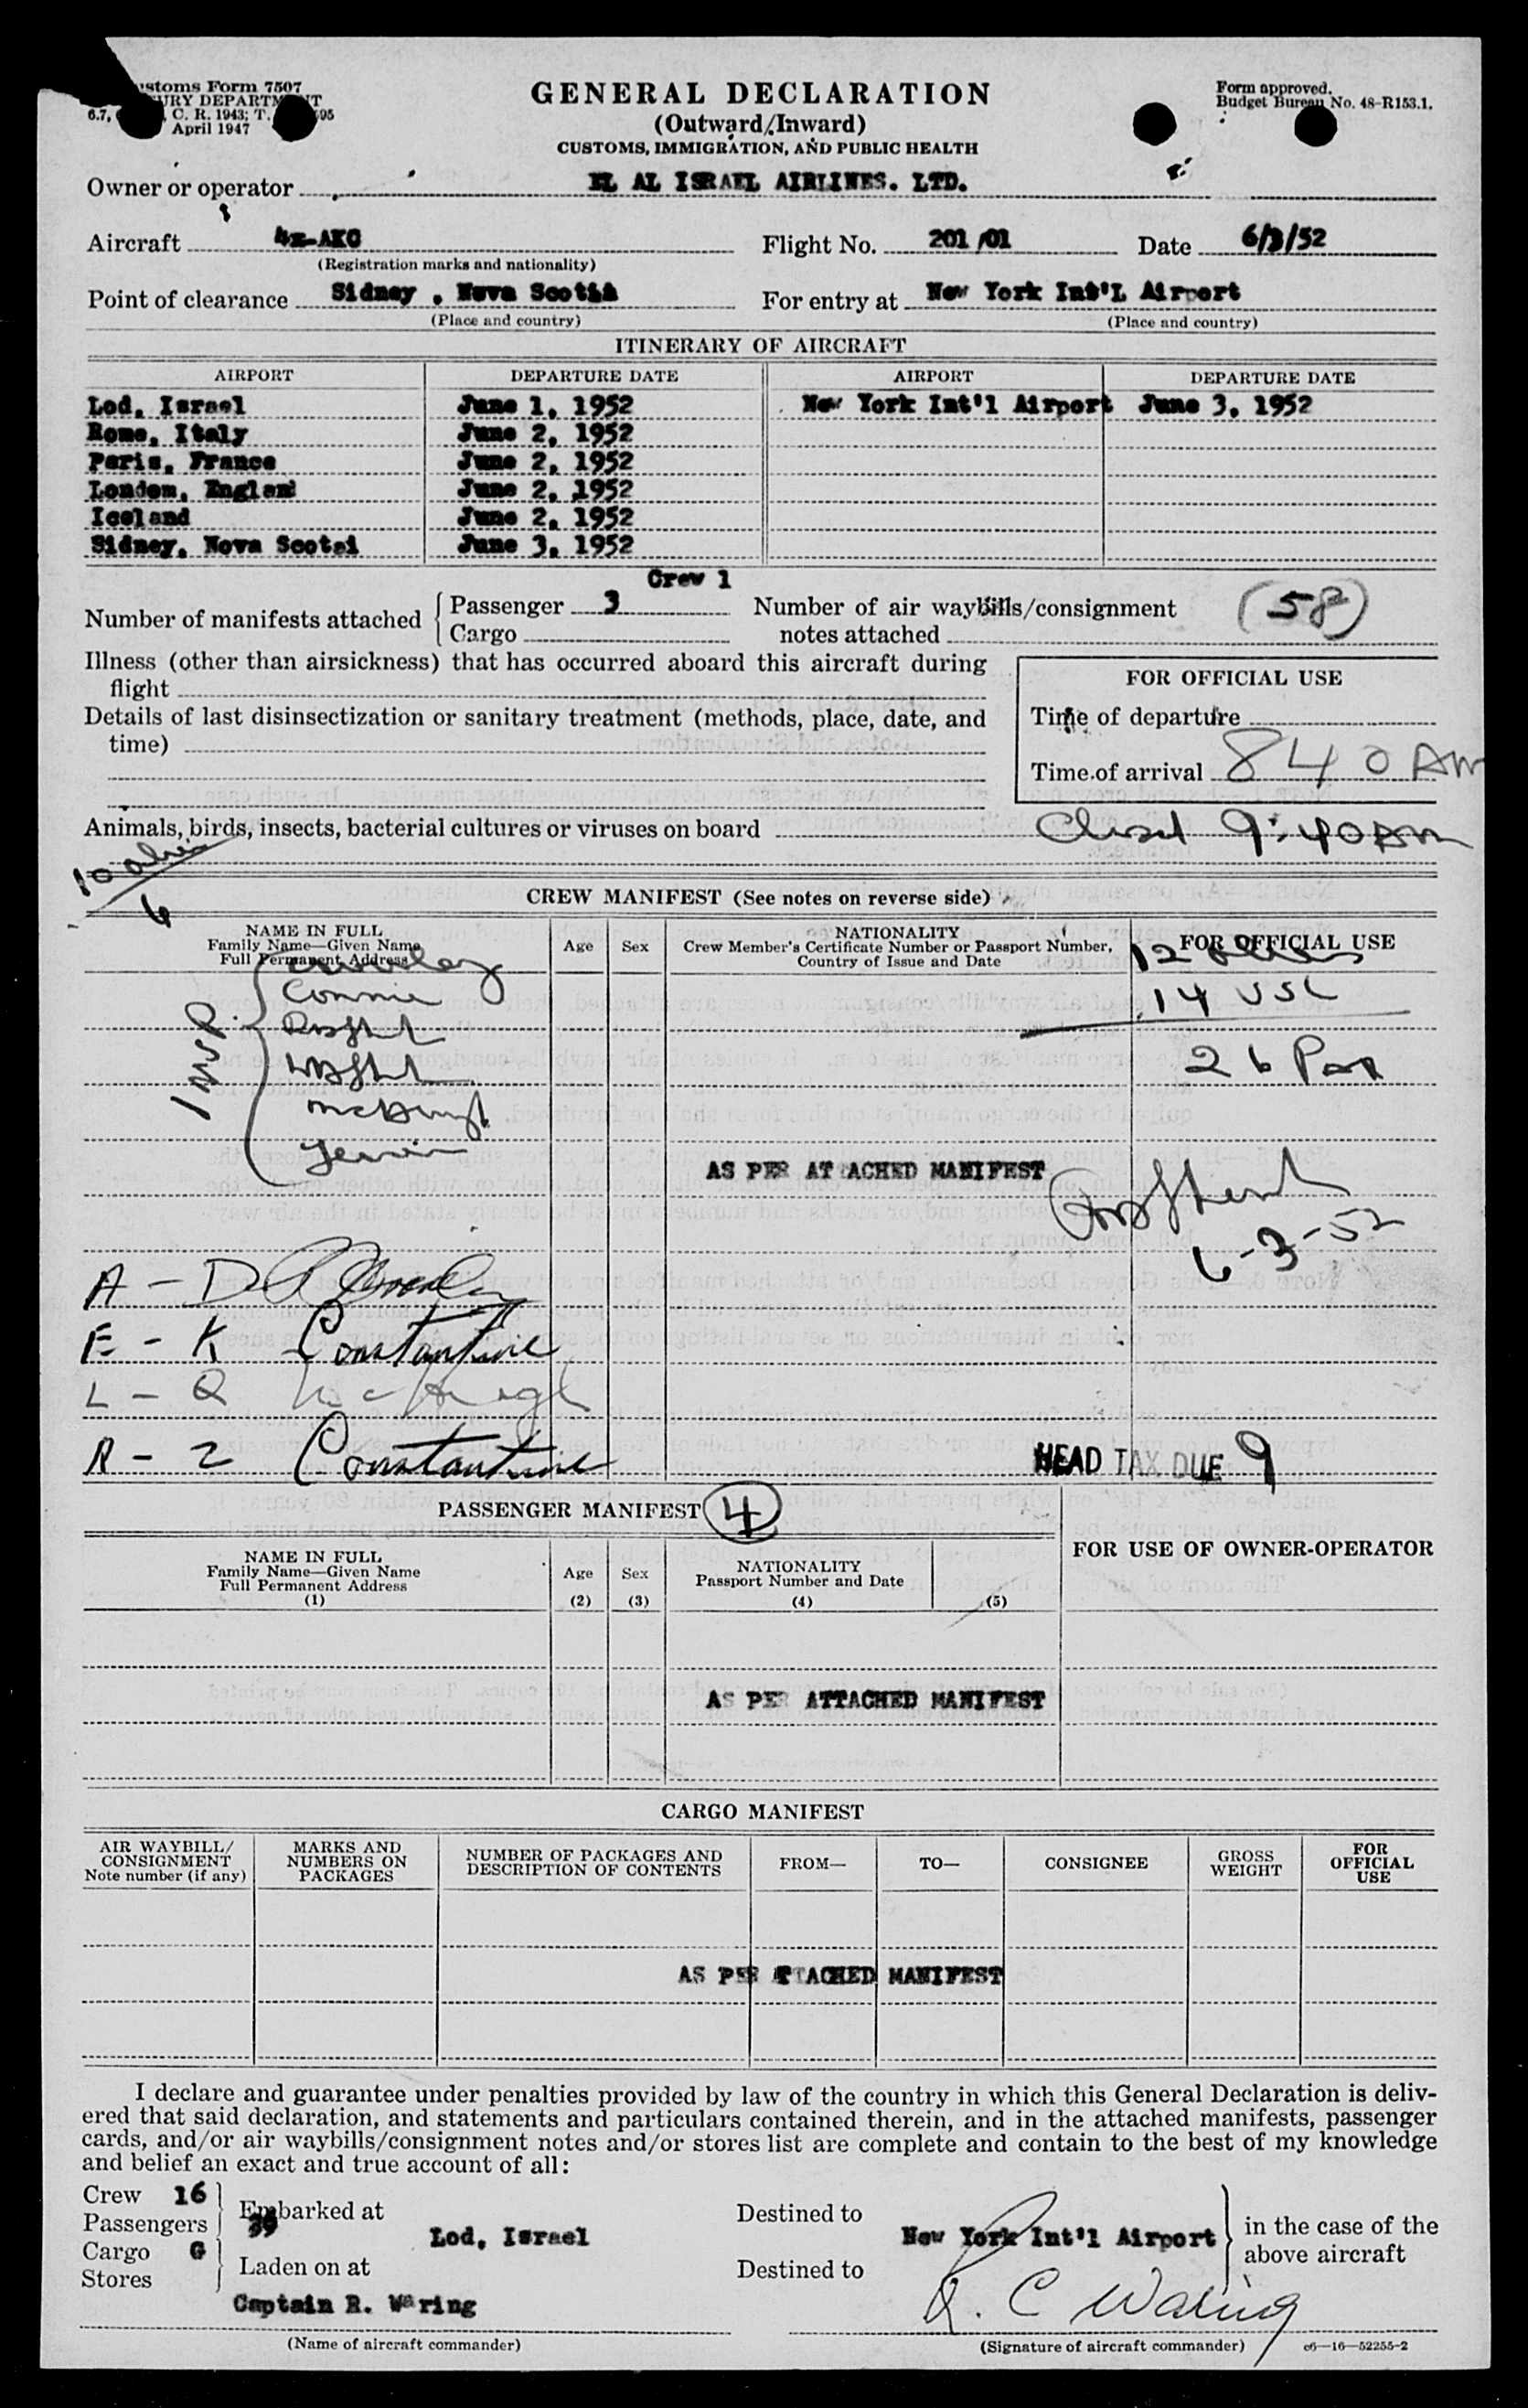 ustoms Form 7507
URY DEPARTM T
6.7, C. R. 1943; T. 95
April 1947
GENERAL DECLARATION
(Outward/Inward)
CUSTOMS, IMMIGRATION, AND PUBLIC HEALTH
Form approved.
Budget Bureau No. 48-R153.1.
Owner or operator EL AL ISRAEL AIRLINES. LTD.
Aircraft 4x-AKC Flight No. 201/01 Date 6/3/52
(Registration marks and nationality)
Point of clearance Sidney, Nova Scotia For entry at New York Int'L Airport
(Place and country) (Place and country)
ITINERARY OF AIRCRAFT
AIRPORT DEPARTURE DATE AIRPORT DEPARTURE DATE
Lod, Israel June 1, 1952 New York Int'l Airport June 3, 1952
Rome, Italy June 2, 1952
Paris, France June 2, 1952
London, England June 2, 1952
Iceland June 2, 1952
Sidney, Nova Scotai June 3, 1952
Crew 1
Number of manifests attached Passenger 3 Number of air waybills/consignment (58)
Cargo notes attached
Illness (other than airsickness) that has occurred aboard this aircraft during
flight
FOR OFFICIAL USE
Details of last disinsectization or sanitary treatment (methods, place, date, and
time)
Time of departure
Time of arrival 840 AM
Animals, birds, insects, bacterial cultures or viruses on board Closed 9:40 AM
10
6
CREW MANIFEST (See notes on reverse side)
NAME IN FULL
Family Name—Given Name
Full Permanent Address
Age Sex
NATIONALITY
Crew Member's Certificate Number or Passport Number,
Country of Issue and Date
FOR OFFICIAL USE
12
14 USC
26 Pax
INSP.
Connie
AS PER AT ACHED MANIFEST
6-3-52
A - D
E - K Constantine
L - Q
R - Z Constantine
HEAD TAX DUE 9
PASSENGER MANIFEST 4
NAME IN FULL
Family Name—Given Name
Full Permanent Address
(1)
Age
(2)
Sex
(3)
NATIONALITY
Passport Number and Date
(4) (5)
FOR USE OF OWNER-OPERATOR
AS PER ATTACHED MANIFEST
CARGO MANIFEST
AIR WAYBILL/
CONSIGNMENT
Note number (if any)
MARKS AND
NUMBERS ON
PACKAGES
NUMBER OF PACKAGES AND
DESCRIPTION OF CONTENTS
FROM—
TO—
CONSIGNEE
GROSS
WEIGHT
FOR
OFFICIAL
USE
AS PER TTACHED MANIFEST
I declare and guarantee under penalties provided by law of the country in which this General Declaration is deliv-
ered that said declaration, and statements and particulars contained therein, and in the attached manifests, passenger
cards, and/or air waybills/consignment notes and/or stores list are complete and contain to the best of my knowledge
and belief an exact and true account of all:
Crew 16
Passengers 39 Embarked at Lod, Israel Destined to New York Int'l Airport in the case of the
above aircraft
Cargo G
Stores Laden on at Destined to
Captain R. Waring R. C Waring
(Name of aircraft commander) (Signature of aircraft commander) c6—16—52255-2